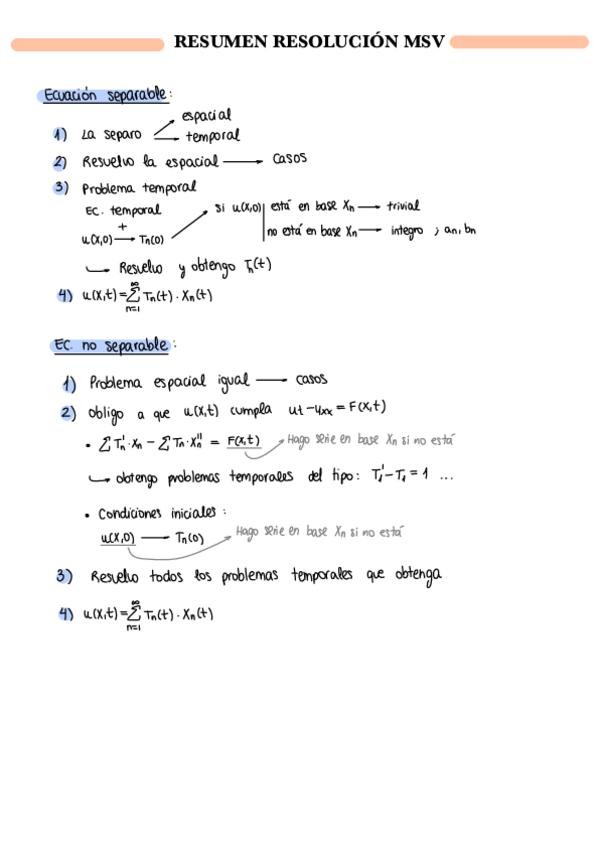 RESUMEN RESOLUCIÓN MSV
Ecuación separable:
1) La separo → espacial
→ temporal
2) Resuelvo la espacial → casos
3) Problema temporal
EC. temporal
+
u(x,0) → Tn(0)
si u(x,0) | está en base Xn → trivial
no está en base Xn → integro ; an, bn
↳ Resuelvo y obtengo Tn(t)
4) u(x,t) = ∞∑n=1 Tn(t) · Xn(t)
EC. no separable:
1) Problema espacial igual → casos
2) obligo a que u(x,t) cumpla ut - uxx = F(x,t)
• ∑ Tn' · Xn - ∑ Tn · Xn'' = F(x,t) → Hago serie en base Xn si no está
↳ obtengo problemas temporales del tipo: T1' - T1 = 1 ...
• Condiciones iniciales:
u(x,0) → Tn(0) Hago serie en base Xn si no está
3) Resuelvo todos los problemas temporales que obtenga
4) u(x,t) = ∞∑n=1 Tn(t) · Xn(t)